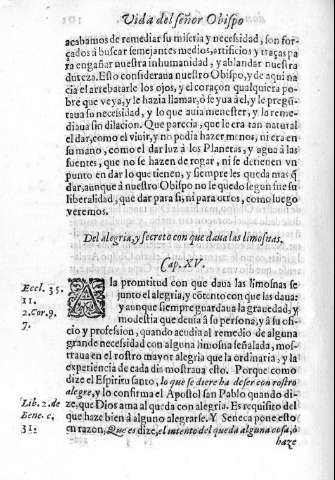 Vida del señor Obispo
acabamos de remediar su miseria y necesidad, son for-
çados à buscar semejantes medios, artificios y traças pa
ra engañar nuestra inhumanidad, y ablandar nuestra
dureza. Esto consideraua nuestro Obispo, y de aqui na-
cia el arrebatarle los ojos, y el coraçon qualquiera po-
bre que veya, y le hazia llamar, ò se yua à el, y le pregũ-
taua su necesidad, y lo que auia menester, y la reme-
diaua sin dilacion. Que parecia, que le era tan natural
el dar, como el viuir, y no podia hazer menos, ni era en
su mano, como el dar luz à los Planetas, y agua à las
fuentes, que no se hazen de rogar, ni se detienen vn
punto en dar lo que tienen, y siempre les queda mas q̃
dar, aunque à nuestro Obispo no le quedo segun fue su
liberalidad, que dar para si, ni para otros, como luego
veremos.
Del alegria, y secreto con que daua las limosnas.
Cap. XV.
Eccl. 35.
11.
2. Cor. 9.
7.
A la promtitud con que daua las limosnas se
junto el alegria, y cõtento con que las daua:
y aunque siempre guardaua la grauedad, y
modestia que deuia à su persona, y à su ofi-
cio y profession, quando acudia al remedio de alguna
grande necesidad con alguna limosna señalada, mos-
traua en el rostro mayor alegria que la ordinaria, y la
experiencia de cada dia mostraua esto. Porque como
dize el Espiritu santo, lo que se diere ha de ser con rostro
alegre, y lo confirma el Apostol san Pablo quando di-
ze, que Dios ama al que da con alegria. Es requisito del
que haze bien à alguno alegrarse. Y Seneca pone esto
en razon, Que es dize, el intento del que da alguna cosa, ò
haze
Lib. 2. de
Bene. c.
31.